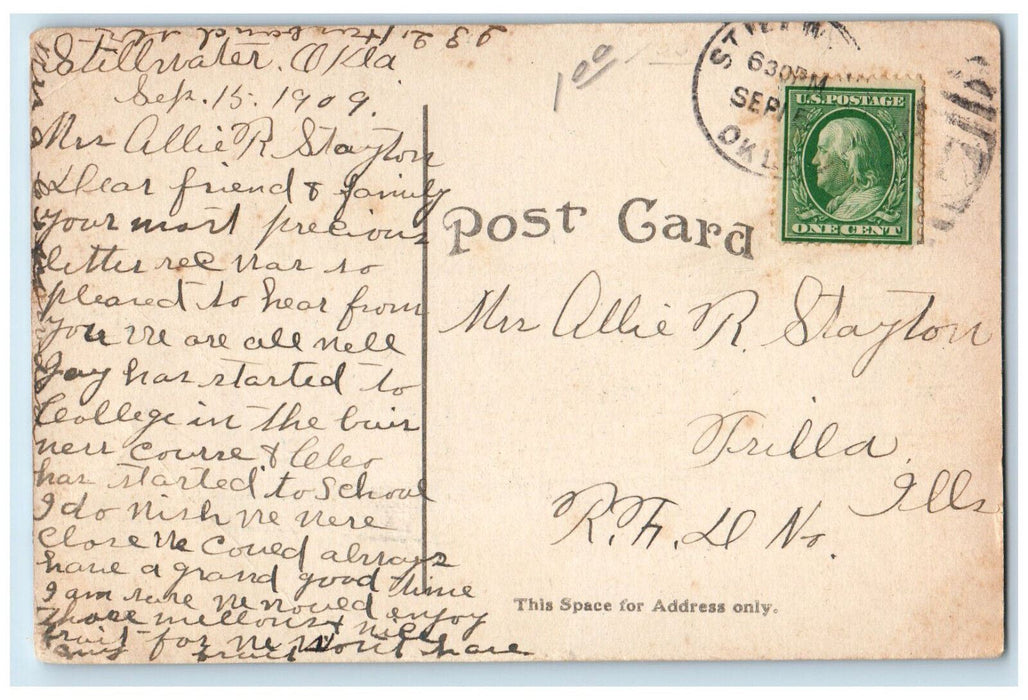 Stillwater. Okla
Sep. 15. 1909.
Mrs Allie R Stayton
Dear friend & family
your most precious
letter rec was so
pleased to hear from
you We are all well
Jay has started to
College in the busi
ness course & Cleo
has started to School
I do wish we were
close We could always
have a grand good time
I am sure we would enjoy
those mellows & nice
fruit for we wont have
any fruit
1 00
STILLWA
6 30 PM
SEP
OKLA
U.S. POSTAGE
ONE CENT
Post Card
Mrs Allie R. Stayton
Trilla,
Ills
R. F. D No.
This Space for Address only.